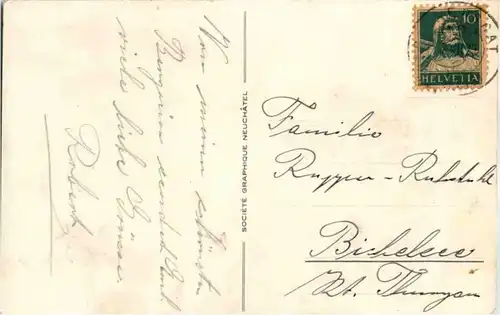 Von meinen schönsten
Bergreise sendet Euch
viele liebe Grüsse
Robert
SOCIÉTÉ GRAPHIQUE NEUCHÂTEL
10
HELVETIA
Familie
Rupper-Rutstuhl
Bichelsee
Kt. Thurgau